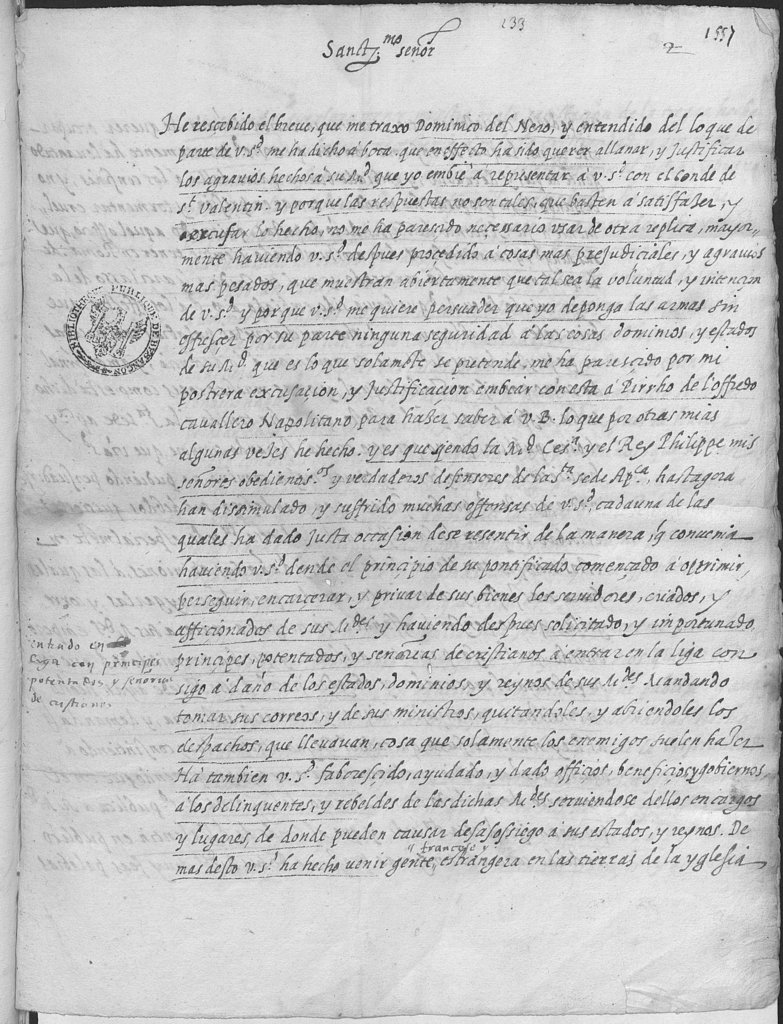 133
2
1557
Sanct.mo señor
He rescebido el breve, que me traxo Dominico del Nero, y entendido del lo que de
parte de v. s.d me ha dicho á boca. que en effecto ha sido querer allanar, y Justificar
los agravios hechos a su M.d que yo embié a representar á v. s.d con el conde de
s.t Valentin. y porque las respuestas no son tales, que basten á satisfazer, y
excusar lo hecho, no me ha parescido necessario usar de otra replica, mayor=
mente haviendo v. s.d despues procedido á cosas mas prejudiciales, y agravios
mas pesados, que muestran abiertamente que tal sea la voluntad, y intencion
de v. s.d y porque v. s.d me quiere persuader que yo deponga las armas sin
offrescer por su parte ninguna seguridad á las cosas dominios, y estados
de su M.d que es lo que solamēte se pretende. me ha parescido por mi
postrera excusation, y Justificacion embear con esta á Pirrho de l'offredo
cavallero Napolitano para hazer saber á v. B. lo que por otras mias
algunas vezes he hecho. y es que siendo la M.d Ces.a y el Rey Philippe mis
señores obedienis.os y verdaderos defensores de la s.ta sede Ap.ca, hastagora
han dissimulado, y suffrido muchas offensas de v. s.d, cada una de las
quales ha dado Justa occasion de se resentir de la manera, q̃ convenia
haviendo v. s.d dende el principio de su pontificado començado á opprimir,
perseguir, encarçerar, y privar de sus bienes los servidores, criados, y
afficionados de sus M.des y haviendo despues solicitado, y importunado
principes, potentados, y señorias de cristianos á entrar en la liga con
sigo á daño de los estados, dominios, y reynos de sus M.des Mandando
tomar sus correos, y de sus ministros, quitandoles, y abriendoles los
despachos, que llevavan, cosa que solamente los enemigos suelen hazer
Ha tambien v. s.d faborescido, ayudado, y dado officios, beneficios y gobiernos
á los delinquentes, y rebeldes de las dichas M.des serviendose dellos en cargos
y lugares, de donde pueden causar desasossiego á sus estados, y reynos. De
mas desto v. s.d ha hecho venir gente, estrangera en las tierras de la yglesia
francese y
entrado en
liga con principes
potentados, y señorias
de cristianos
BIBLIOTHEQUE PUBLIQUE DE BESANÇON